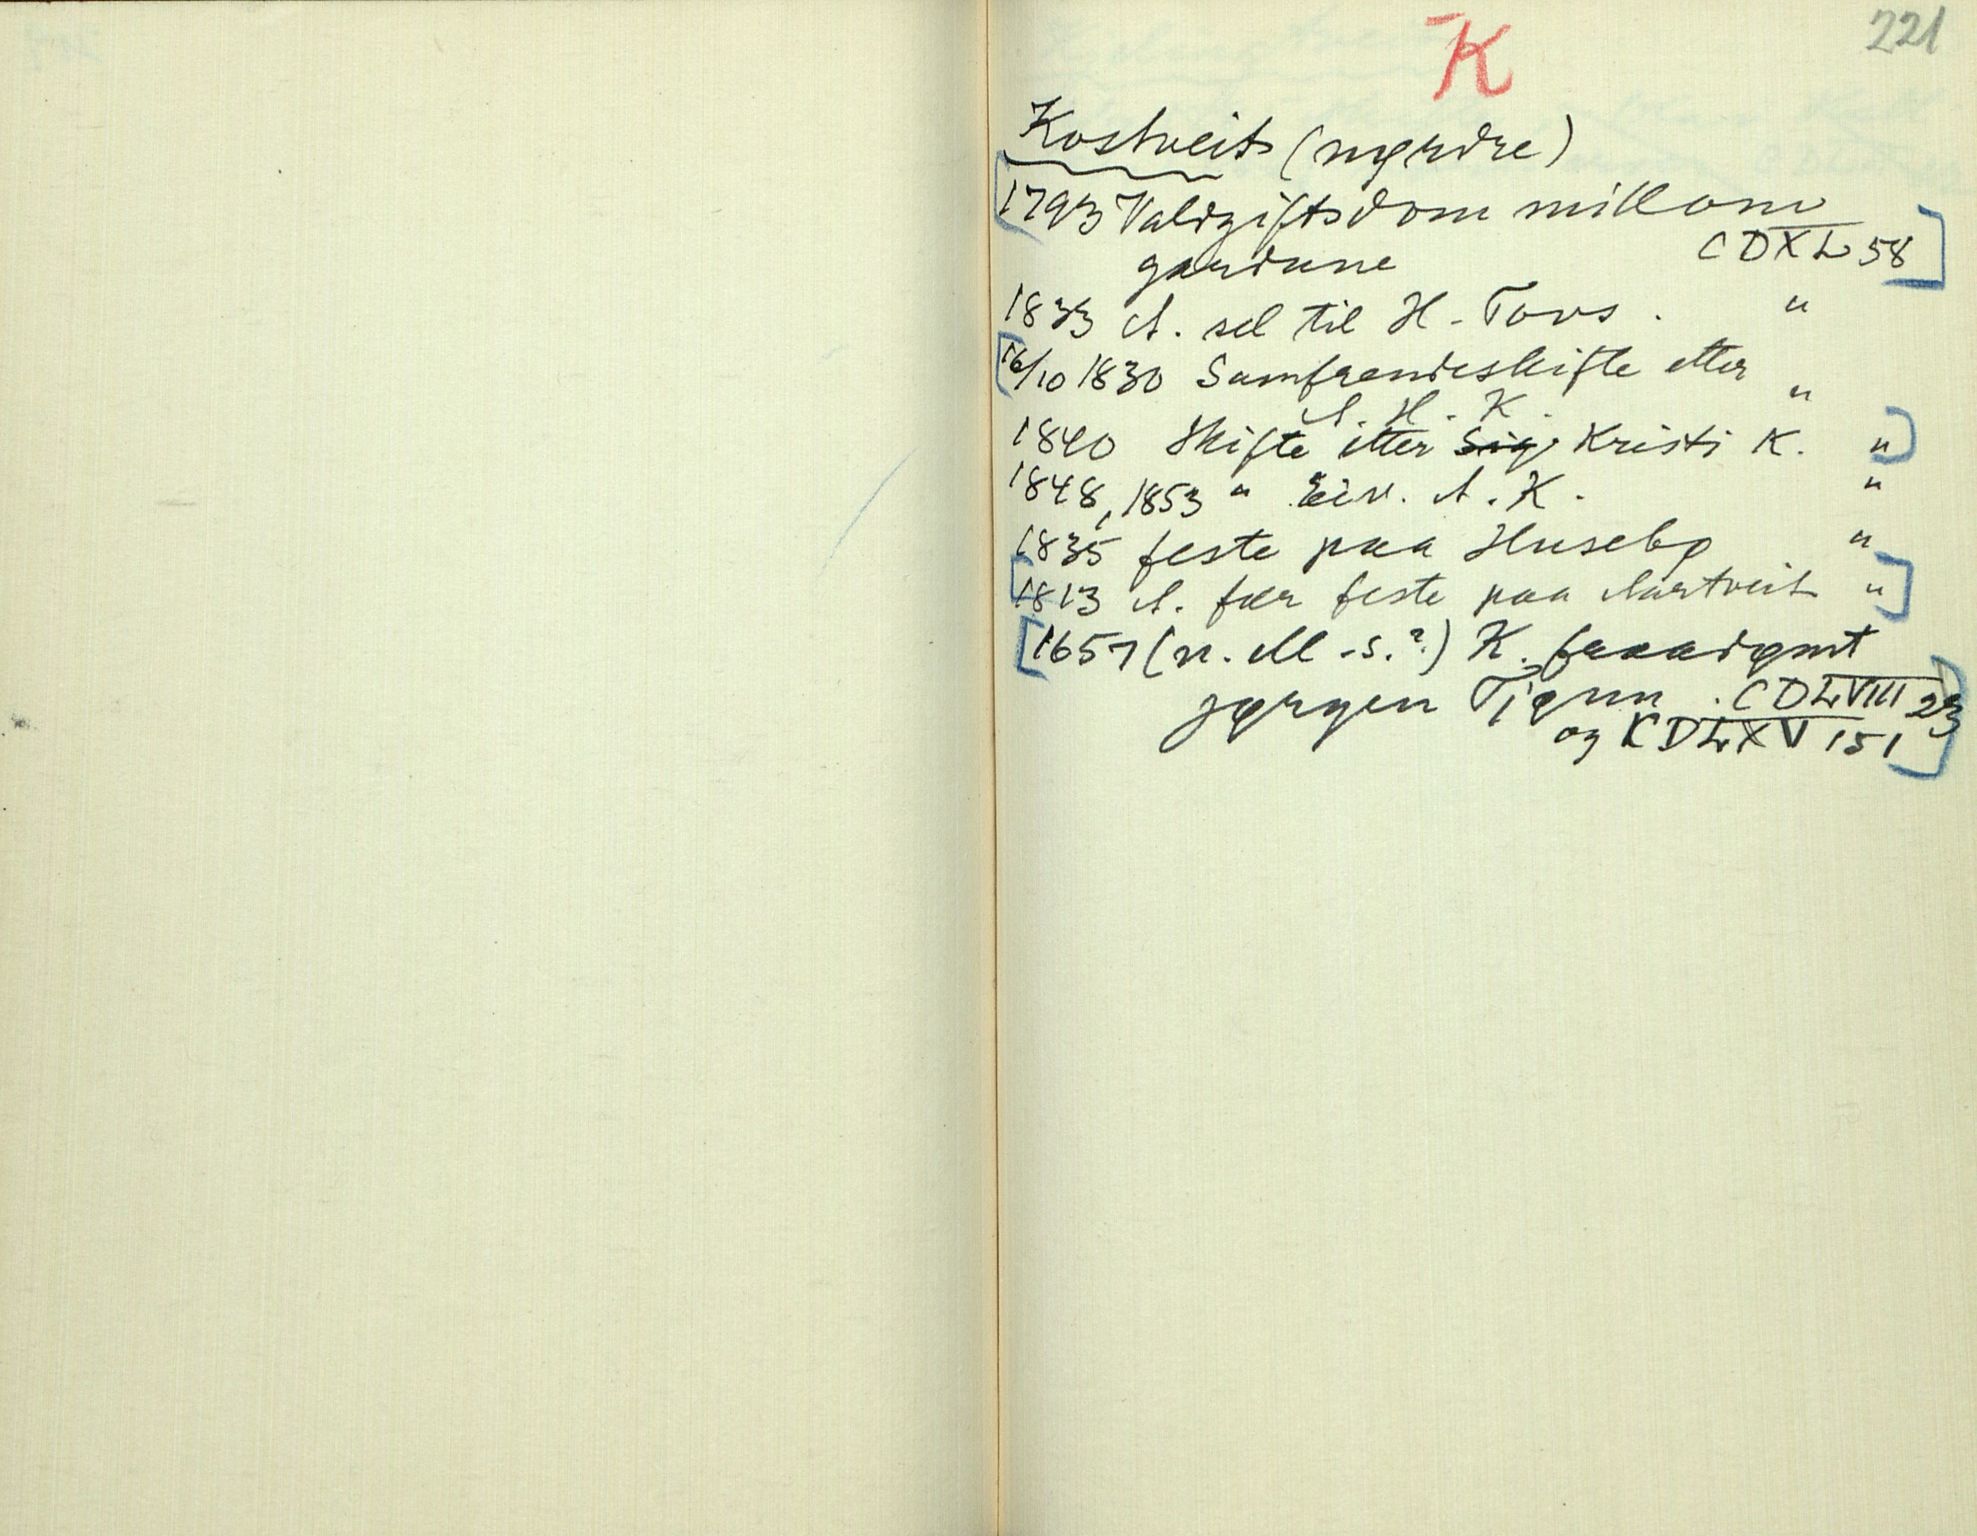 221
K
Kostveit (nørdre)
[1793 Valdgiftsdom millom
gardane CDXL 58]
1833 A. sel til H. Tovs. "
[16/10 1830 Samfrendeskifte etter "
A. H. K.
1840 Skifte etter Sig. Kristi K. "]
1848, 1853 " Eiv. A. K. "
1835 feste paa Husebø "
[1813 A. fær feste paa Aartveit "]
[1657 (n. M-s.?) K. faaadømt
Jørgen Tjønn. CDLVIII 23
og CDLXV 151]